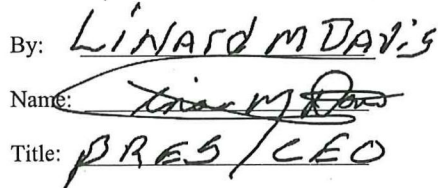 By: LiNArd M DAVis
Name: M
Title: PRES / CEO